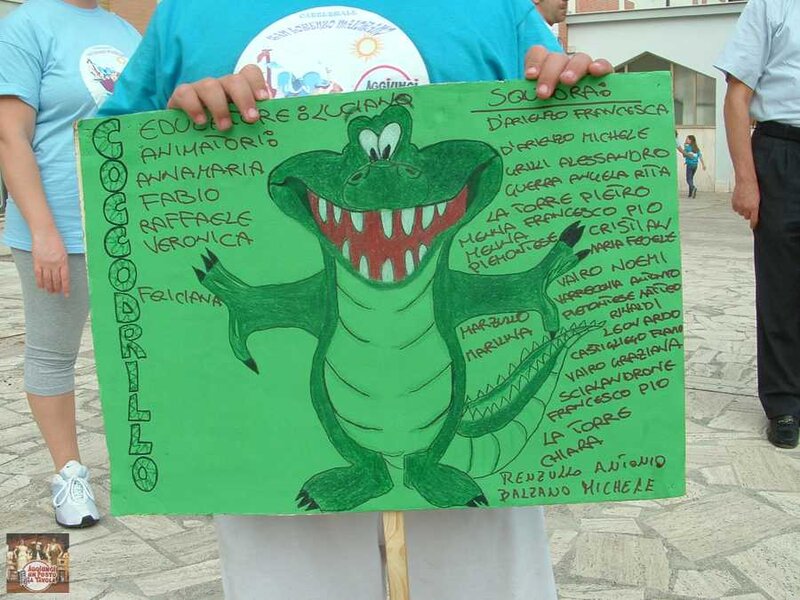 COCCODRILLO
EDUCATORE: LUCIANO
ANIMATORI:
ANNAMARIA
FABIO
RAFFAELE
VERONICA
FELICIANA
SQUADRA:
D'ARIENZO FRANCESCA
D'ARIENZO MICHELE
GRILLI ALESSANDRO
GUERRA ANGELA RITA
LA TORRE PIETRO
MENNA FRANCESCO PIO
MENNA CRISTIAN
PIEMONTESE MARIA FEDELE
VAIRO NOEMI
VARRECCHIA ANTONIO
PIEMONTESE MATTEO
RINALDI
LEONARDO
MARZULLO
MARILINA
CASTIGLIEGO
VAIRO GRAZIANA
SCIRANDRONE
FRANCESCO PIO
LA TORRE
CHIARA
RENZULLO ANTONIO
BALZANO MICHELE
AGGIUNGI
AGGIUNGI
UN POSTO
A TAVOLA